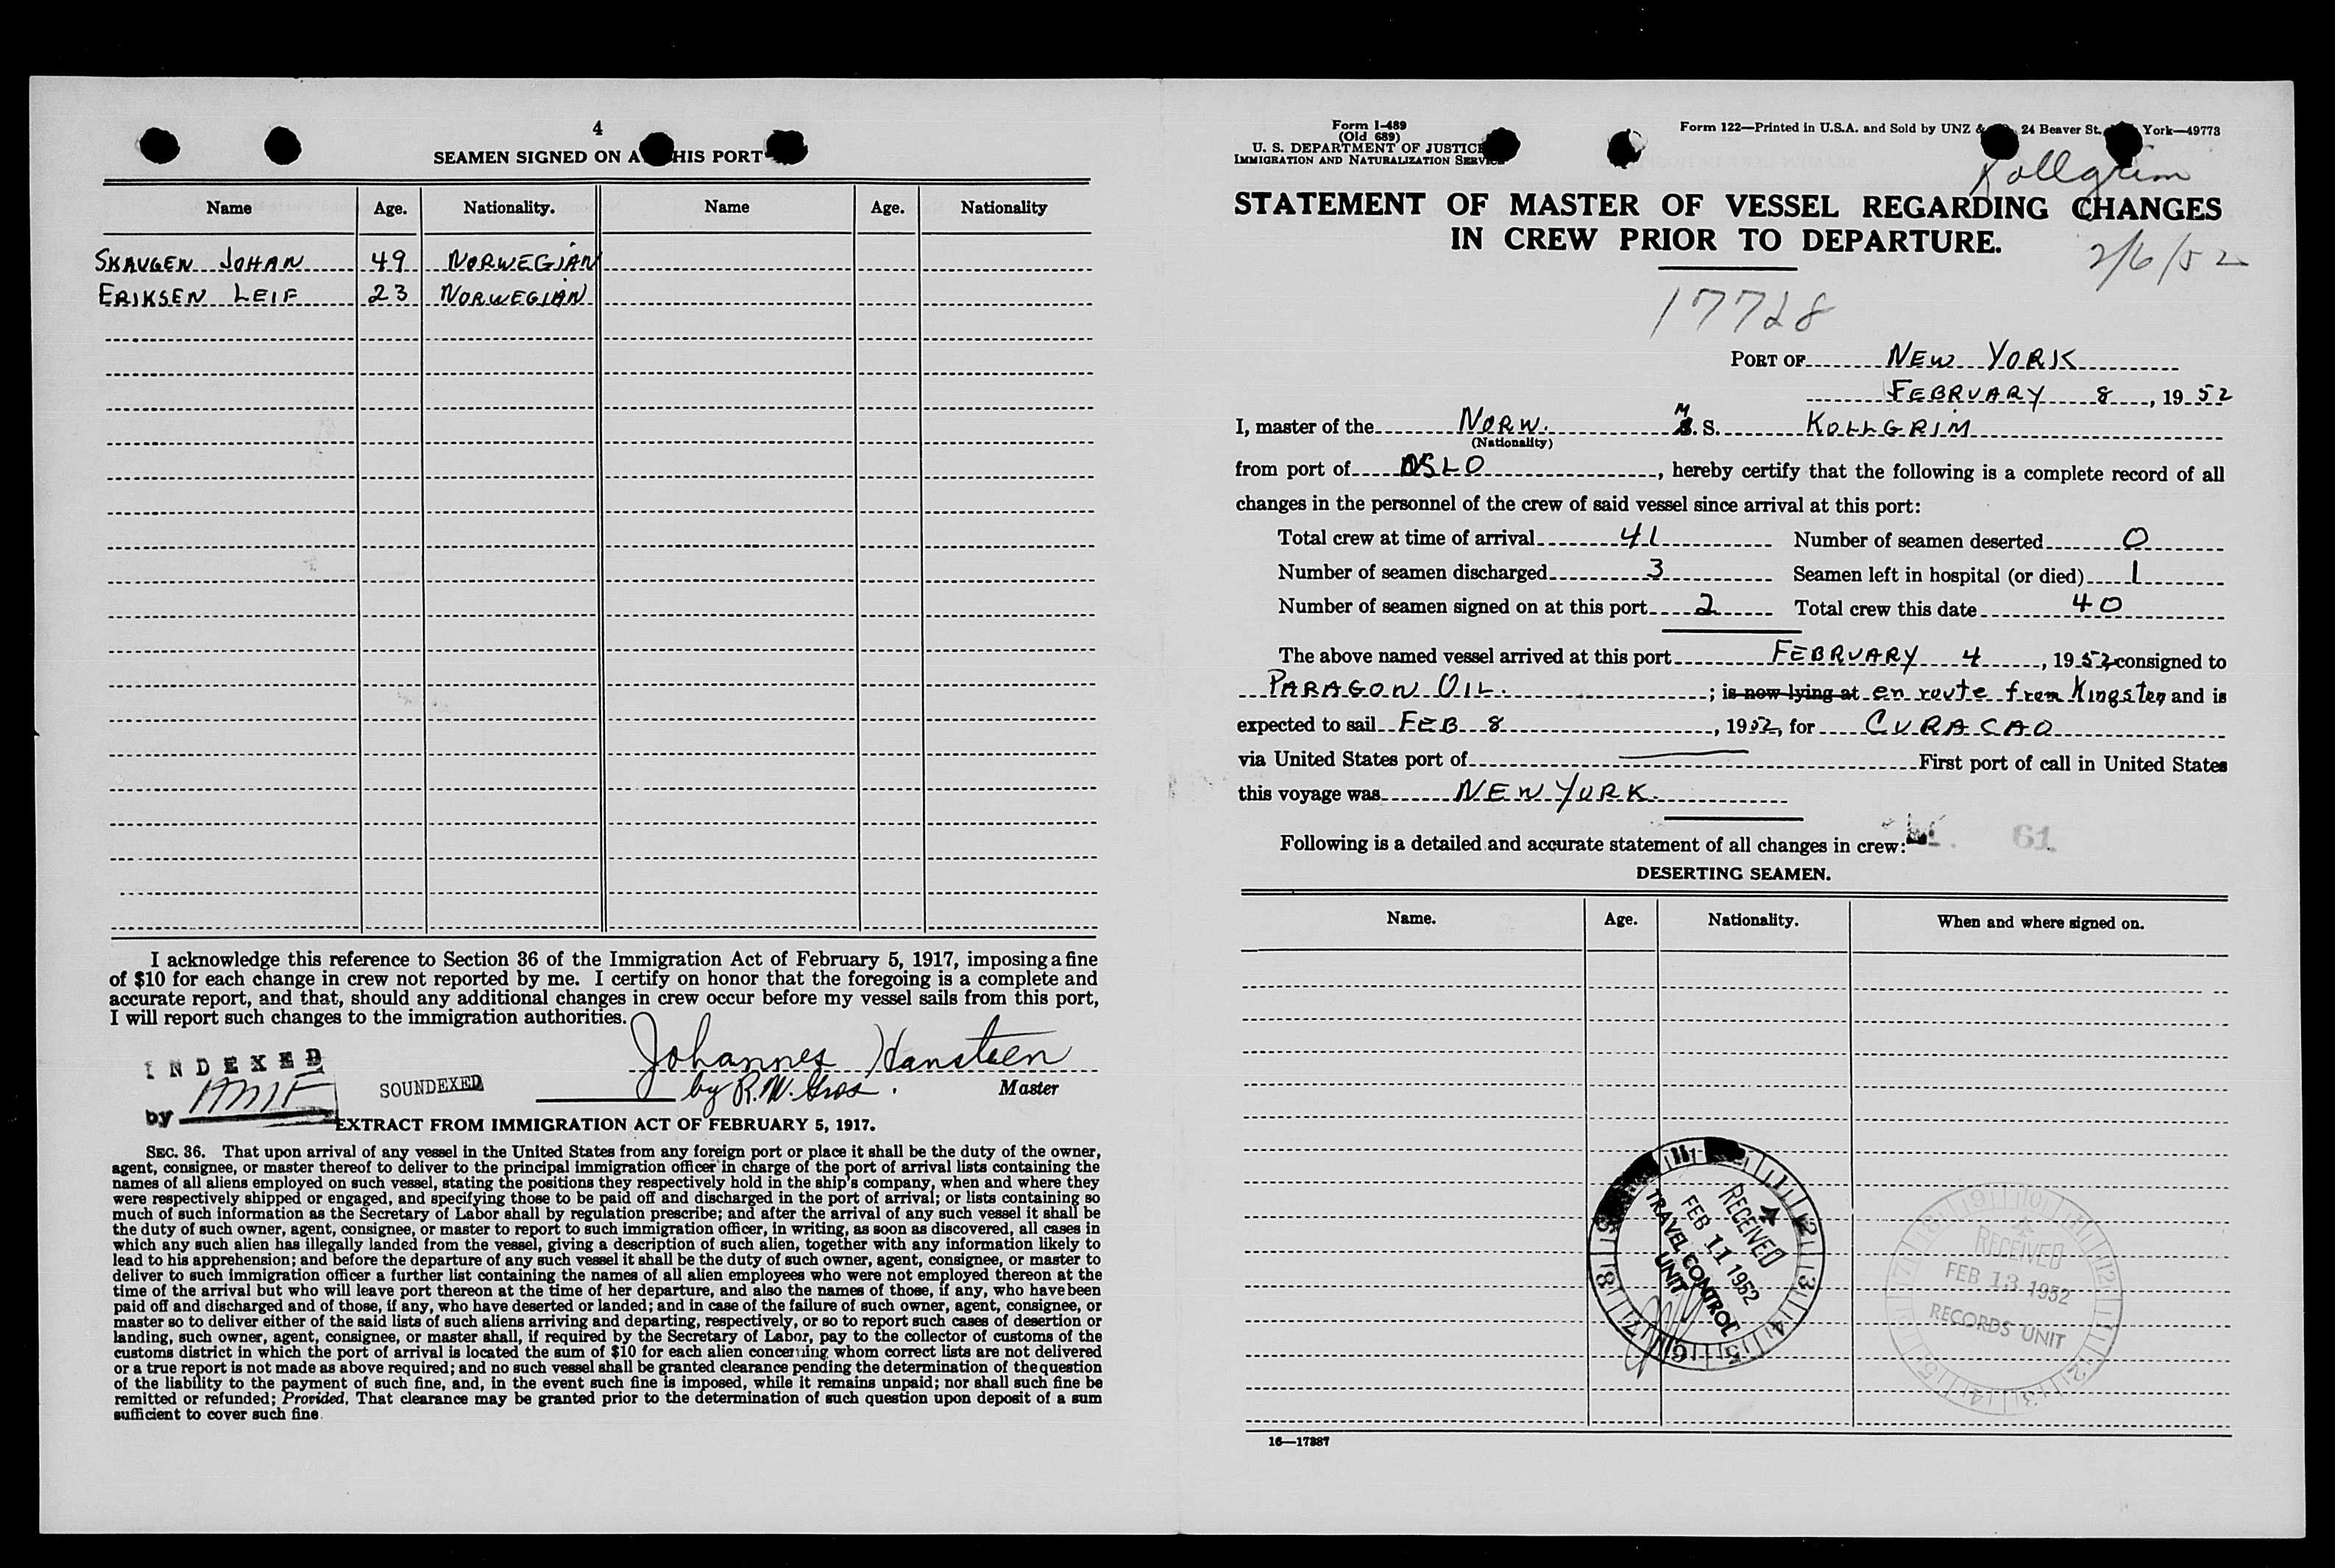 4
SEAMEN SIGNED ON A HIS PORT
Name Age. Nationality. Name Age. Nationality
SKAUGEN JOHAN 49 NORWEGIAN
ERIKSEN LEIF 23 NORWEGIAN
I acknowledge this reference to Section 36 of the Immigration Act of February 5, 1917, imposing a fine
of $10 for each change in crew not reported by me. I certify on honor that the foregoing is a complete and
accurate report, and that, should any additional changes in crew occur before my vessel sails from this port,
I will report such changes to the immigration authorities.
Johannes Hansteen
by R.W.
Master
INDEXED
by
SOUNDEXED
EXTRACT FROM IMMIGRATION ACT OF FEBRUARY 5, 1917.
SEC. 36. That upon arrival of any vessel in the United States from any foreign port or place it shall be the duty of the owner,
agent, consignee, or master thereof to deliver to the principal immigration officer in charge of the port of arrival lists containing the
names of all aliens employed on such vessel, stating the positions they respectively hold in the ship's company, when and where they
were respectively shipped or engaged, and specifying those to be paid off and discharged in the port of arrival; or lists containing so
much of such information as the Secretary of Labor shall by regulation prescribe; and after the arrival of any such vessel it shall be
the duty of such owner, agent, consignee, or master to report to such immigration officer, in writing, as soon as discovered, all cases in
which any such alien has illegally landed from the vessel, giving a description of such alien, together with any information likely to
lead to his apprehension; and before the departure of any such vessel it shall be the duty of such owner, agent, consignee, or master to
deliver to such immigration officer a further list containing the names of all alien employees who were not employed thereon at the
time of the arrival but who will leave port thereon at the time of her departure, and also the names of those, if any, who have been
paid off and discharged and of those, if any, who have deserted or landed; and in case of the failure of such owner, agent, consignee, or
master so to deliver either of the said lists of such aliens arriving and departing, respectively, or so to report such cases of desertion or
landing, such owner, agent, consignee, or master shall, if required by the Secretary of Labor, pay to the collector of customs of the
customs district in which the port of arrival is located the sum of $10 for each alien concerning whom correct lists are not delivered
or a true report is not made as above required; and no such vessel shall be granted clearance pending the determination of the question
of the liability to the payment of such fine, and, in the event such fine is imposed, while it remains unpaid; nor shall such fine be
remitted or refunded; Provided, That clearance may be granted prior to the determination of such question upon deposit of a sum
sufficient to cover such fine.
Form I-489
(Old 689)
U. S. DEPARTMENT OF JUSTICE
IMMIGRATION AND NATURALIZATION SERVICE
Form 122—Printed in U.S.A. and Sold by UNZ & 24 Beaver St. York—49773
Kollgrim
STATEMENT OF MASTER OF VESSEL REGARDING CHANGES
IN CREW PRIOR TO DEPARTURE.
2/6/52
17728
PORT OF NEW YORK
FEBRUARY 8, 1952
I, master of the NORW. M. S. KOLLGRIM
(Nationality)
from port of OSLO, hereby certify that the following is a complete record of all
changes in the personnel of the crew of said vessel since arrival at this port:
Total crew at time of arrival 41 Number of seamen deserted 0
Number of seamen discharged 3 Seamen left in hospital (or died) 1
Number of seamen signed on at this port 2 Total crew this date 40
The above named vessel arrived at this port FEBRUARY 4, 1952 consigned to
PARAGON OIL.; is now lying at en route from Kingston and is
expected to sail FEB 8, 1952, for CURACAO
via United States port of — First port of call in United States
this voyage was NEW YORK.
Following is a detailed and accurate statement of all changes in crew:
61
DESERTING SEAMEN.
Name. Age. Nationality. When and where signed on.
RECEIVED
FEB 11 1952
TRAVEL CONTROL
UNIT
RECEIVED
FEB 13 1952
RECORDS UNIT
16—17387